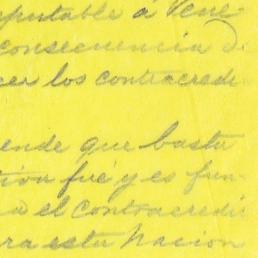 eputable á Vene-
consecuencia d
cer los contracredi-
ende que basta
tion fué y es fun-
a el contracredi
ra esta Nacion